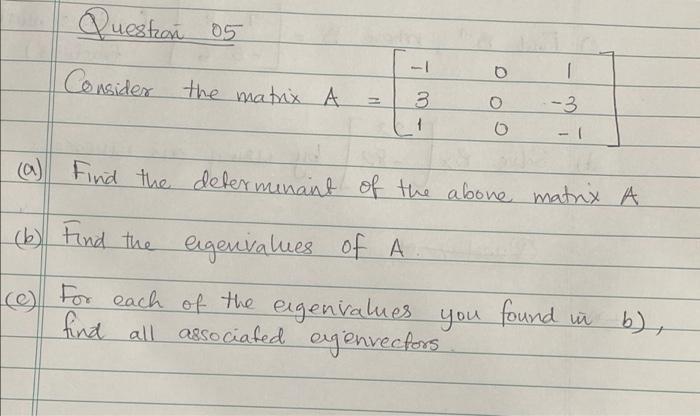 Question 05
Consider the matrix A = [ -1 0 1
3 0 -3
1 0 -1 ]
(a) Find the determinant of the above matrix A
(b) Find the eigenvalues of A.
(c) For each of the eigenvalues you found in b),
find all associated eigenvectors.